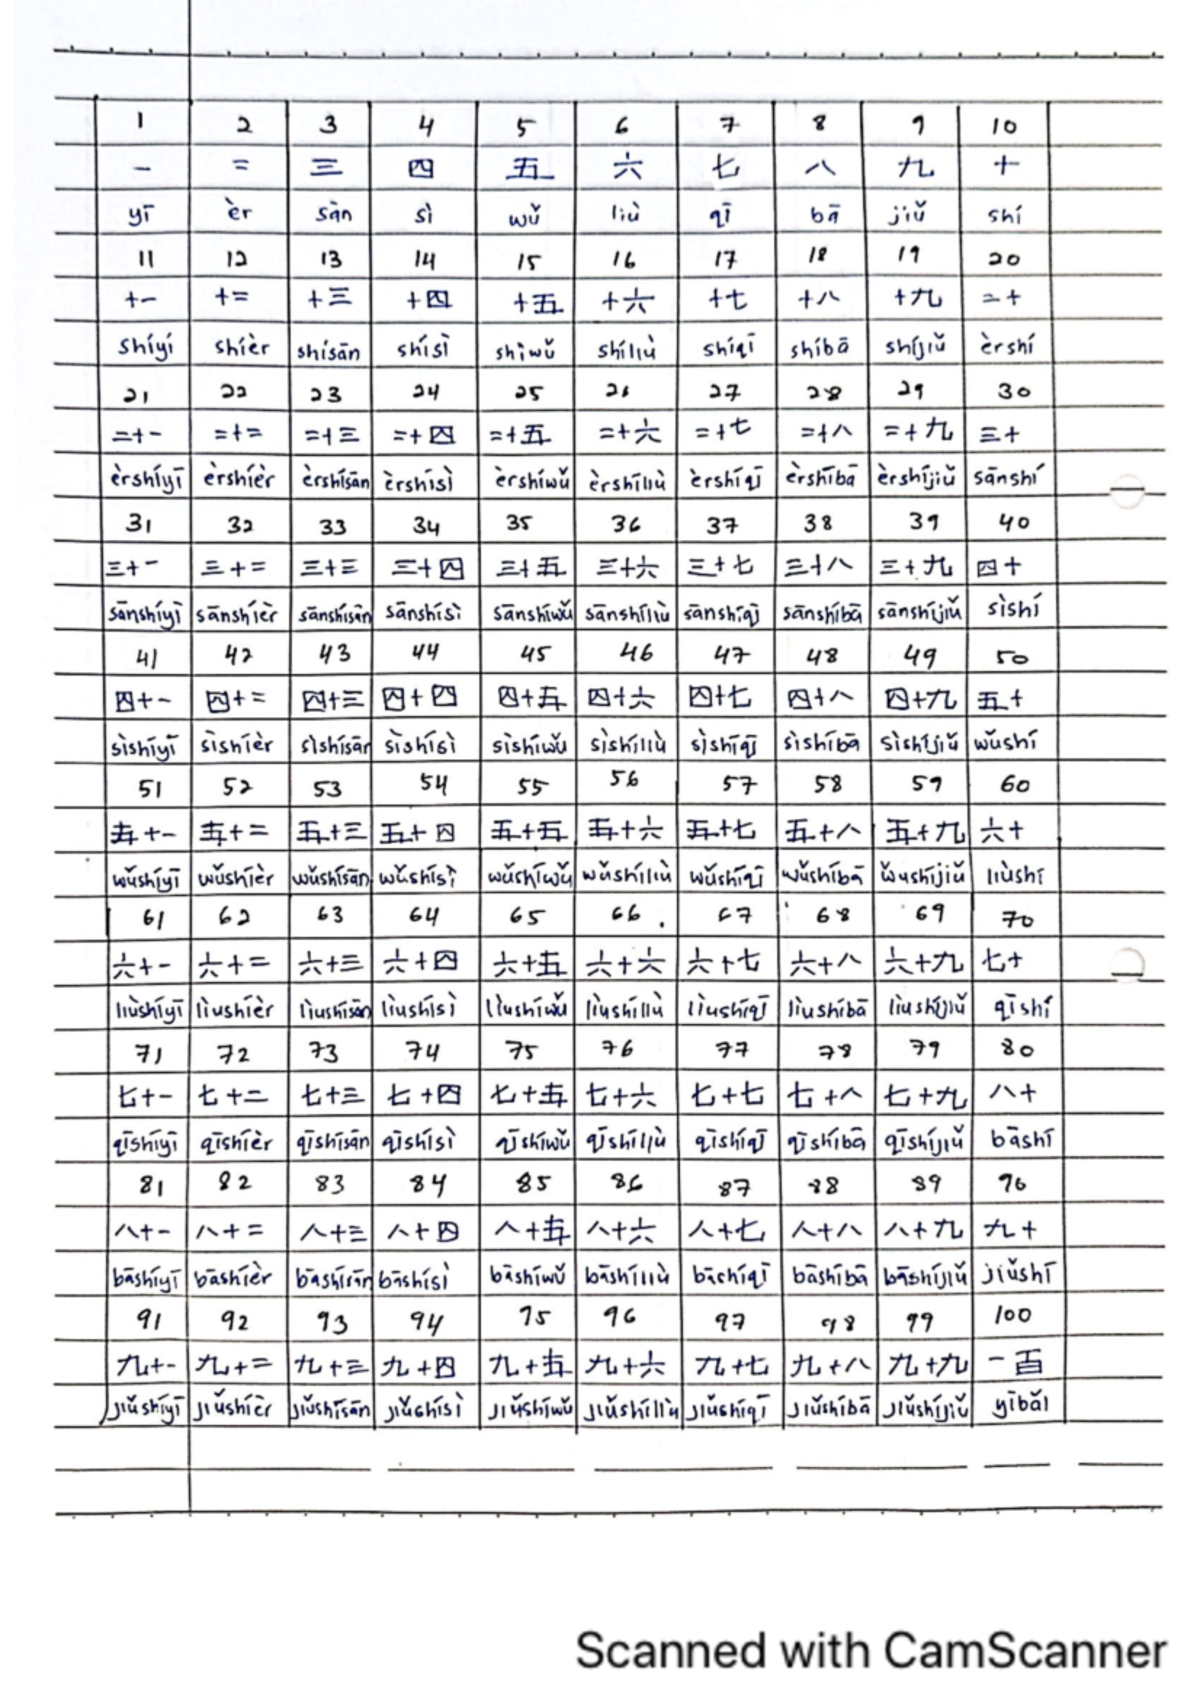 1 2 3 4 5 6 7 8 9 10
一 二 三 四 五 六 七 八 九 十
yī èr sān sì wǔ liù qī bā jiǔ shí
11 12 13 14 15 16 17 18 19 20
十一 十二 十三 十四 十五 十六 十七 十八 十九 二十
shíyí shíèr shísān shísì shíwǔ shíliù shíqī shíbā shíjiǔ èrshí
21 22 23 24 25 26 27 28 29 30
二十一 二十二 二十三 二十四 二十五 二十六 二十七 二十八 二十九 三十
èrshíyī èrshíèr èrshísān èrshísì èrshíwǔ èrshíliù èrshíqī èrshíbā èrshíjiǔ sānshí
31 32 33 34 35 36 37 38 39 40
三十一 三十二 三十三 三十四 三十五 三十六 三十七 三十八 三十九 四十
sānshíyī sānshíèr sānshísān sānshísì sānshíwǔ sānshíliù sānshíqī sānshíbā sānshíjiǔ sìshí
41 42 43 44 45 46 47 48 49 50
四十一 四十二 四十三 四十四 四十五 四十六 四十七 四十八 四十九 五十
sìshíyī sìshíèr sìshísān sìshísì sìshíwǔ sìshíliù sìshíqī sìshíbā sìshíjiǔ wǔshí
51 52 53 54 55 56 57 58 59 60
五十一 五十二 五十三 五十四 五十五 五十六 五十七 五十八 五十九 六十
wǔshíyī wǔshíèr wǔshísān wǔshísì wǔshíwǔ wǔshíliù wǔshíqī wǔshíbā wǔshíjiǔ liùshí
61 62 63 64 65 66 67 68 69 70
六十一 六十二 六十三 六十四 六十五 六十六 六十七 六十八 六十九 七十
liùshíyī lìushíèr lìushísān lìushísì lìushíwǔ lìushíliù lìushíqī lìushíbā lìushíjiǔ qīshí
71 72 73 74 75 76 77 78 79 80
七十一 七十二 七十三 七十四 七十五 七十六 七十七 七十八 七十九 八十
qīshíyī qīshíèr qīshísān qīshísì qīshíwǔ qīshíliù qīshíqī qīshíbā qīshíjiǔ bāshí
81 82 83 84 85 86 87 88 89 90
八十一 八十二 八十三 八十四 八十五 八十六 八十七 八十八 八十九 九十
bāshíyī bāshíèr bāshísān bāshísì bāshíwǔ bāshíliù bāshíqī bāshíbā bāshíjiǔ jiǔshí
91 92 93 94 95 96 97 98 99 100
九十一 九十二 九十三 九十四 九十五 九十六 九十七 九十八 九十九 一百
jiǔshíyī jiǔshíèr jiǔshísān jiǔshísì jiǔshíwǔ jiǔshíliù jiǔshíqī jiǔshíbā jiǔshíjiǔ yībǎi
Scanned with CamScanner